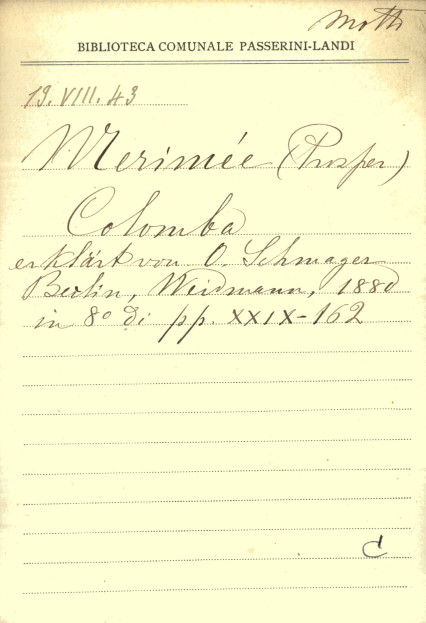 Motti
BIBLIOTECA COMUNALE PASSERINI-LANDI
13.VIII.43
Merimée (Prosper)
Colomba
erklärt von O. Schmager
Berlin, Weidmann, 1880
in 8º di pp. XXIX-162
C